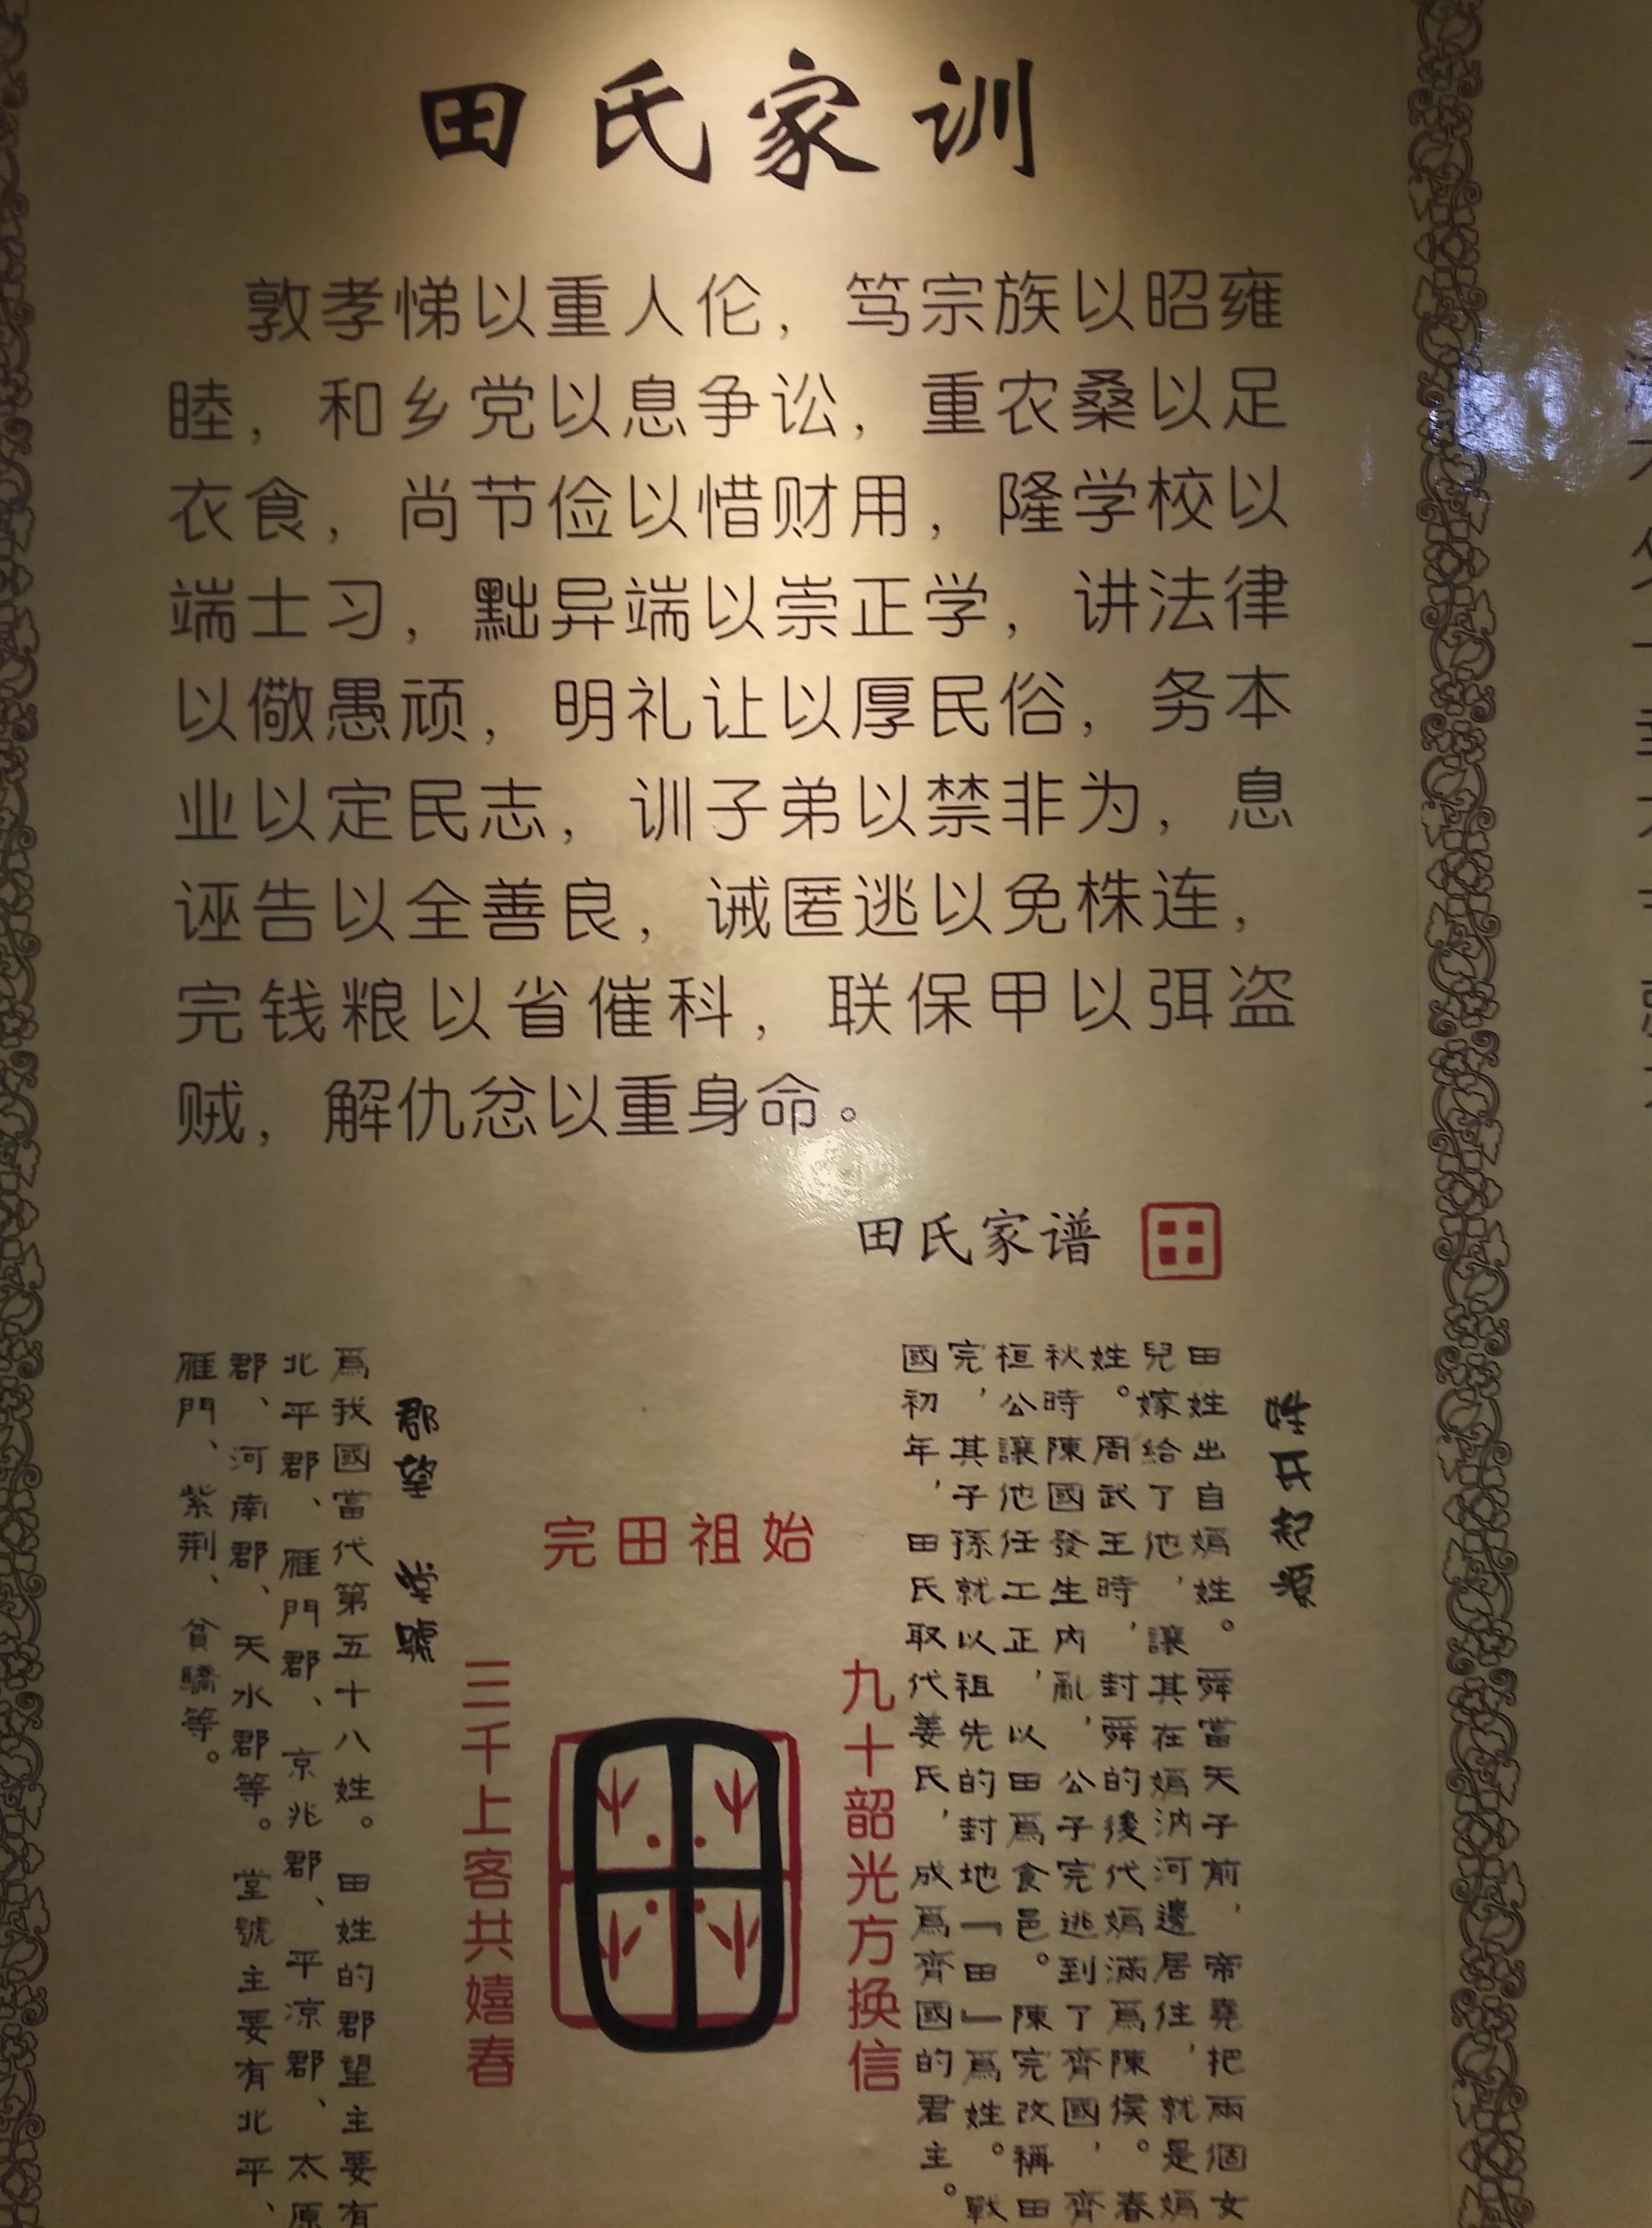 田氏家训
敦孝悌以重人伦，笃宗族以昭雍
睦，和乡党以息争讼，重农桑以足
衣食，尚节俭以惜财用，隆学校以
端士习，黜异端以崇正学，讲法律
以儆愚顽，明礼让以厚民俗，务本
业以定民志，训子弟以禁非为，息
诬告以全善良，诫匿逃以免株连，
完钱粮以省催科，联保甲以弭盗
贼，解仇忿以重身命。
田氏家谱
田
姓氏起源
田姓出自嬀姓。舜當天子前，帝堯把兩個女
兒嫁給了他，讓其在嬀汭河邊居住，就是嬀
姓。周武王時，封舜的後代嬀滿爲陳侯。春
秋時陳國發生内亂，公子完逃到了齊國，齊
桓公讓他任工正，以田爲食邑。陳完改稱田
完，其子孫就以祖先的封地「田」爲姓。戰
國初年，田氏取代姜氏，成爲齊國的君主。
始祖田完
九十韶光方换信
三千上客共嬉春
郡望 堂號
爲我國當代第五十八姓。田姓的郡望主要有
北平郡、雁門郡、京兆郡、平凉郡、太原
郡、河南郡、天水郡等。堂號主要有北平、
雁門、紫荆、貧驕等。